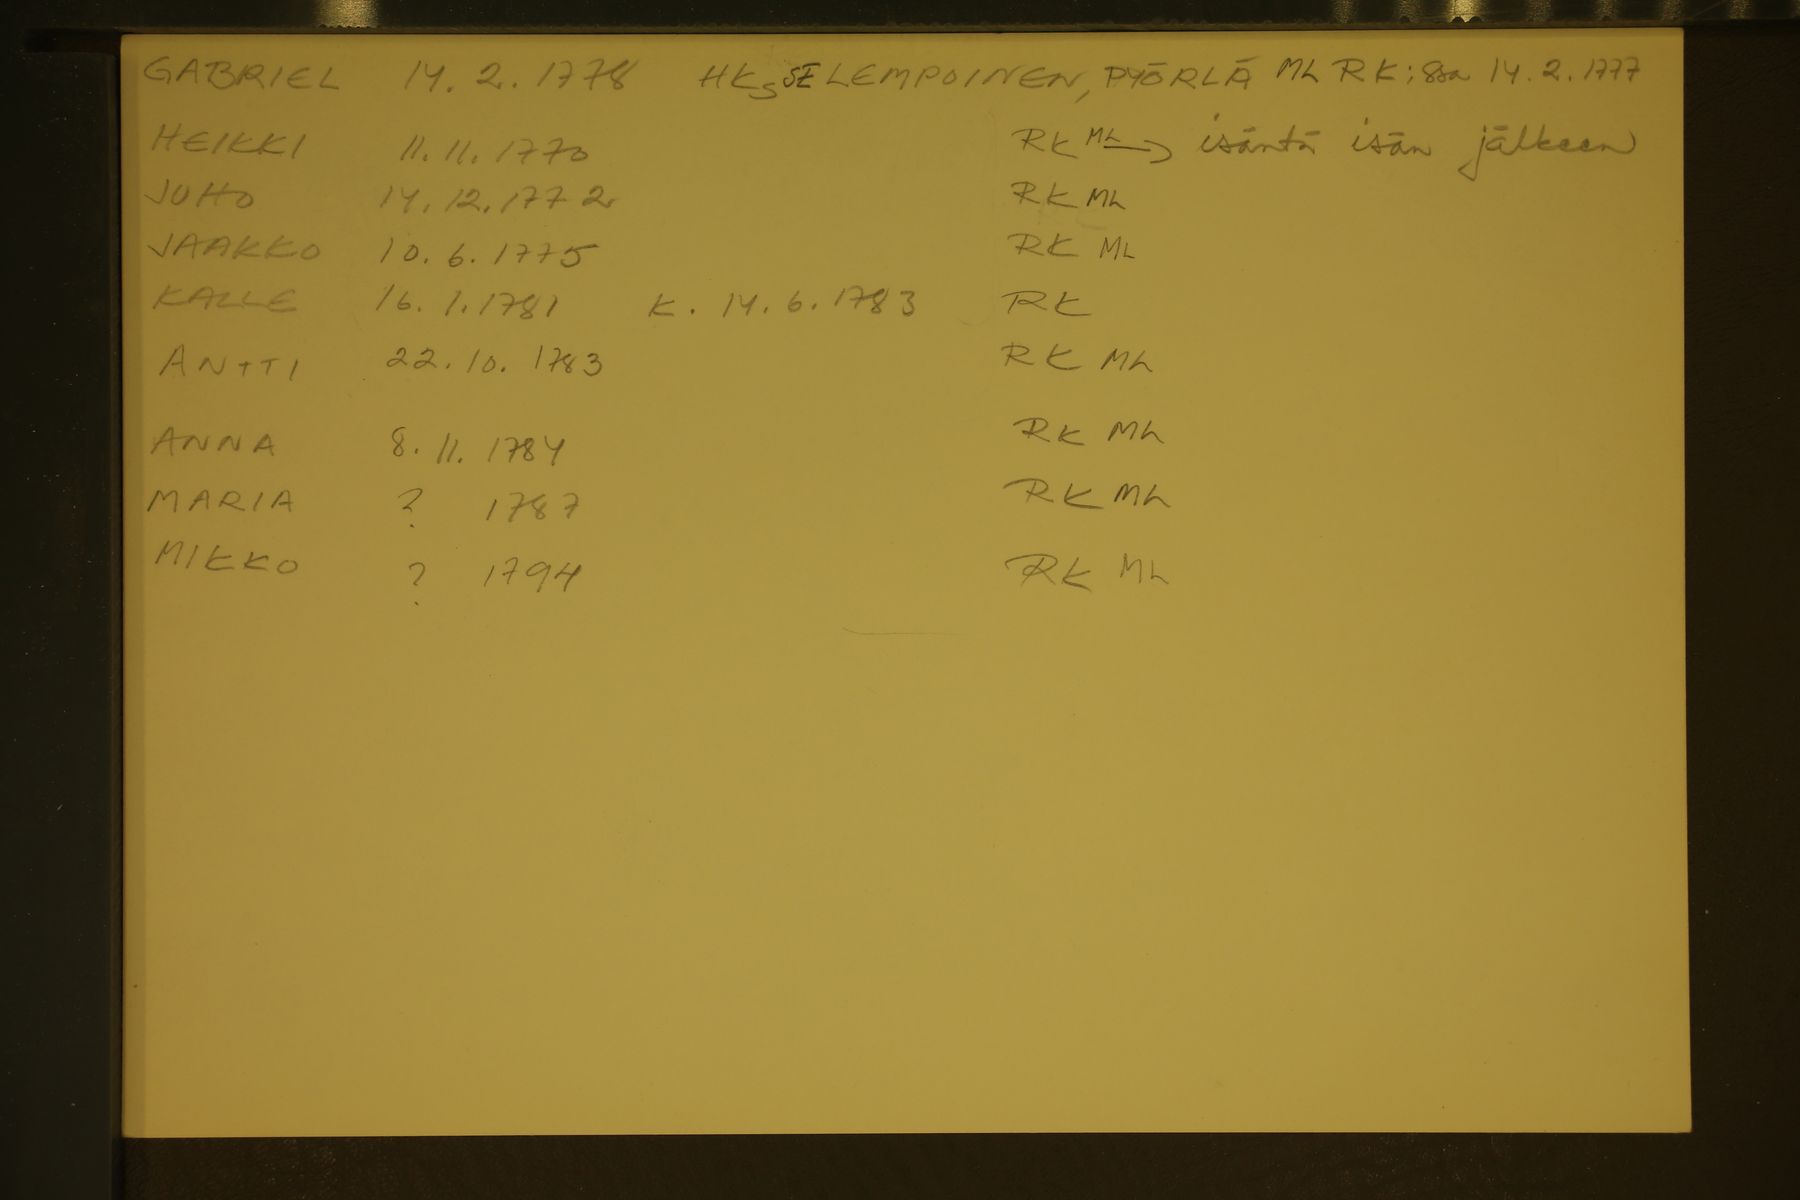 GABRIEL 14. 2. 1778 HKS SE LEMPOINEN, PYÖRLÄ ML RK:ssa 14. 2. 1777
HEIKKI 11. 11. 1770 RK ML → isäntä isän jälkeen
JUHO 14. 12. 1772 RK ML
JAAKKO 10. 6. 1775 RK ML
KALLE 16. 1. 1781 K. 14. 6. 1783 RK
ANTTI 22. 10. 1783 RK ML
ANNA 8. 11. 1784 RK ML
MARIA ? 1787 RK ML
MIKKO ? 1794 RK ML